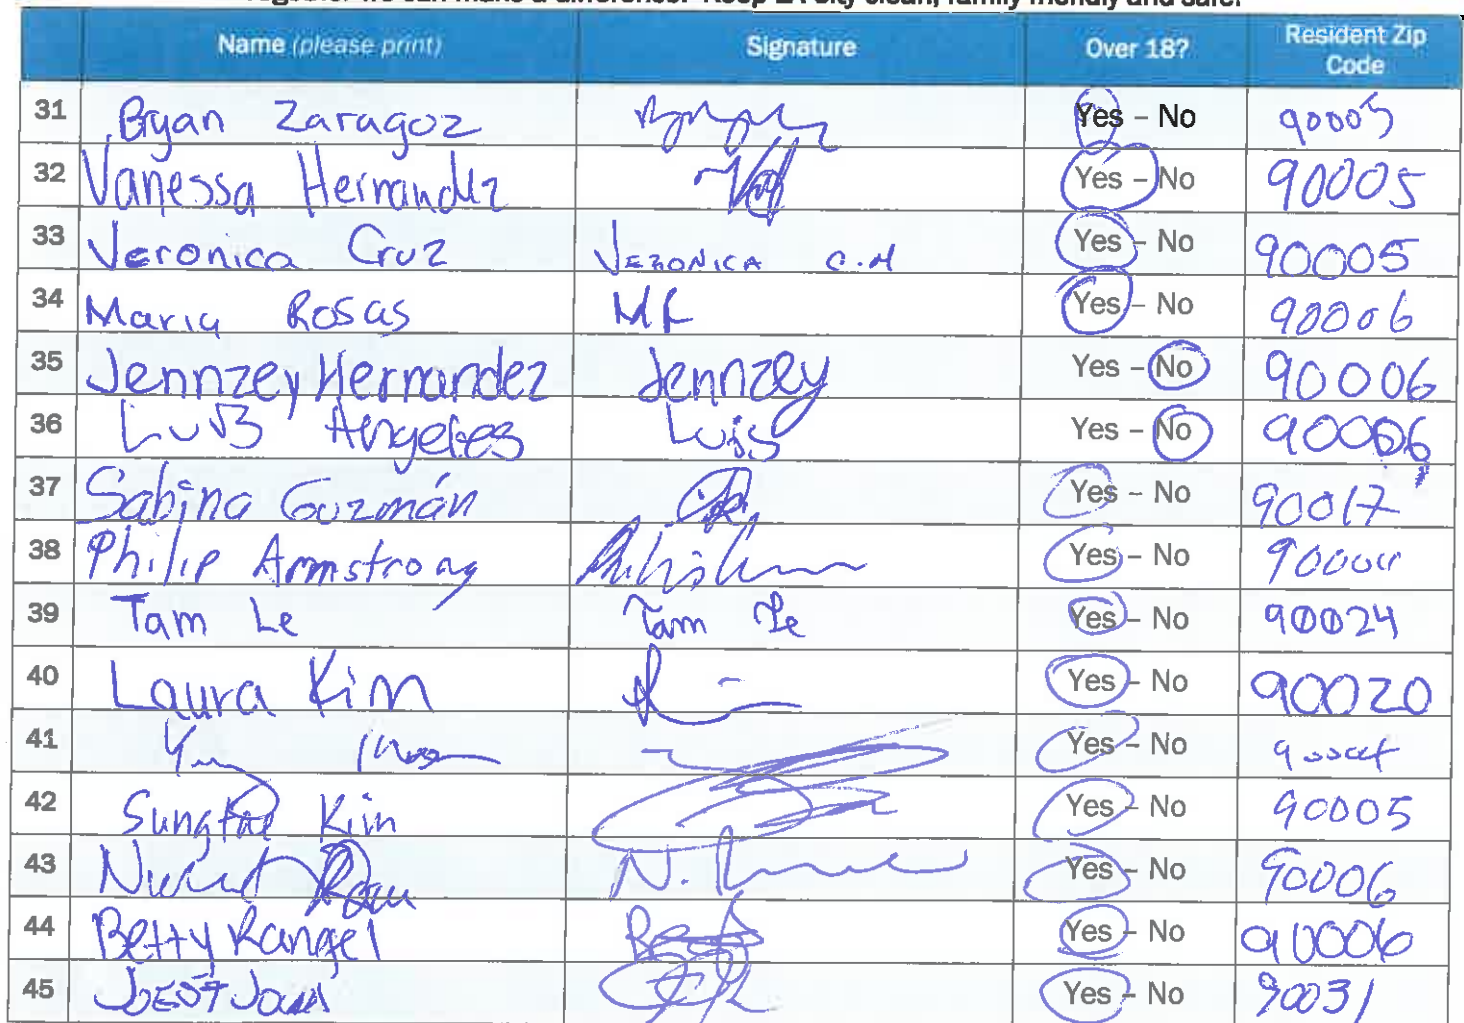 Together we can make a difference. Keep LA City clean, family friendly and safe!
Name (please print) Signature Over 18? Resident Zip Code
31 Bryan Zaragoz Yes – No 90005
32 Vanessa Hernandez Yes – No 90005
33 Veronica Cruz VERONICA C.M Yes – No 90005
34 Maria Rosas MR Yes – No 90006
35 Jennzey Hernandez Jennzey Yes – No 90006
36 Luis Angeles Luis Yes – No 90006
37 Sabina Guzmán Yes – No 90017
38 Philip Armstrong Yes – No
39 Tam Le Tam Le Yes – No 90024
40 Laura Kim Yes – No 90020
41 Yes – No
42 Sungtae Kim Yes – No 90005
43 N. Yes – No 90006
44 Betty Rangel Yes – No 90006
45 Yes – No 90031